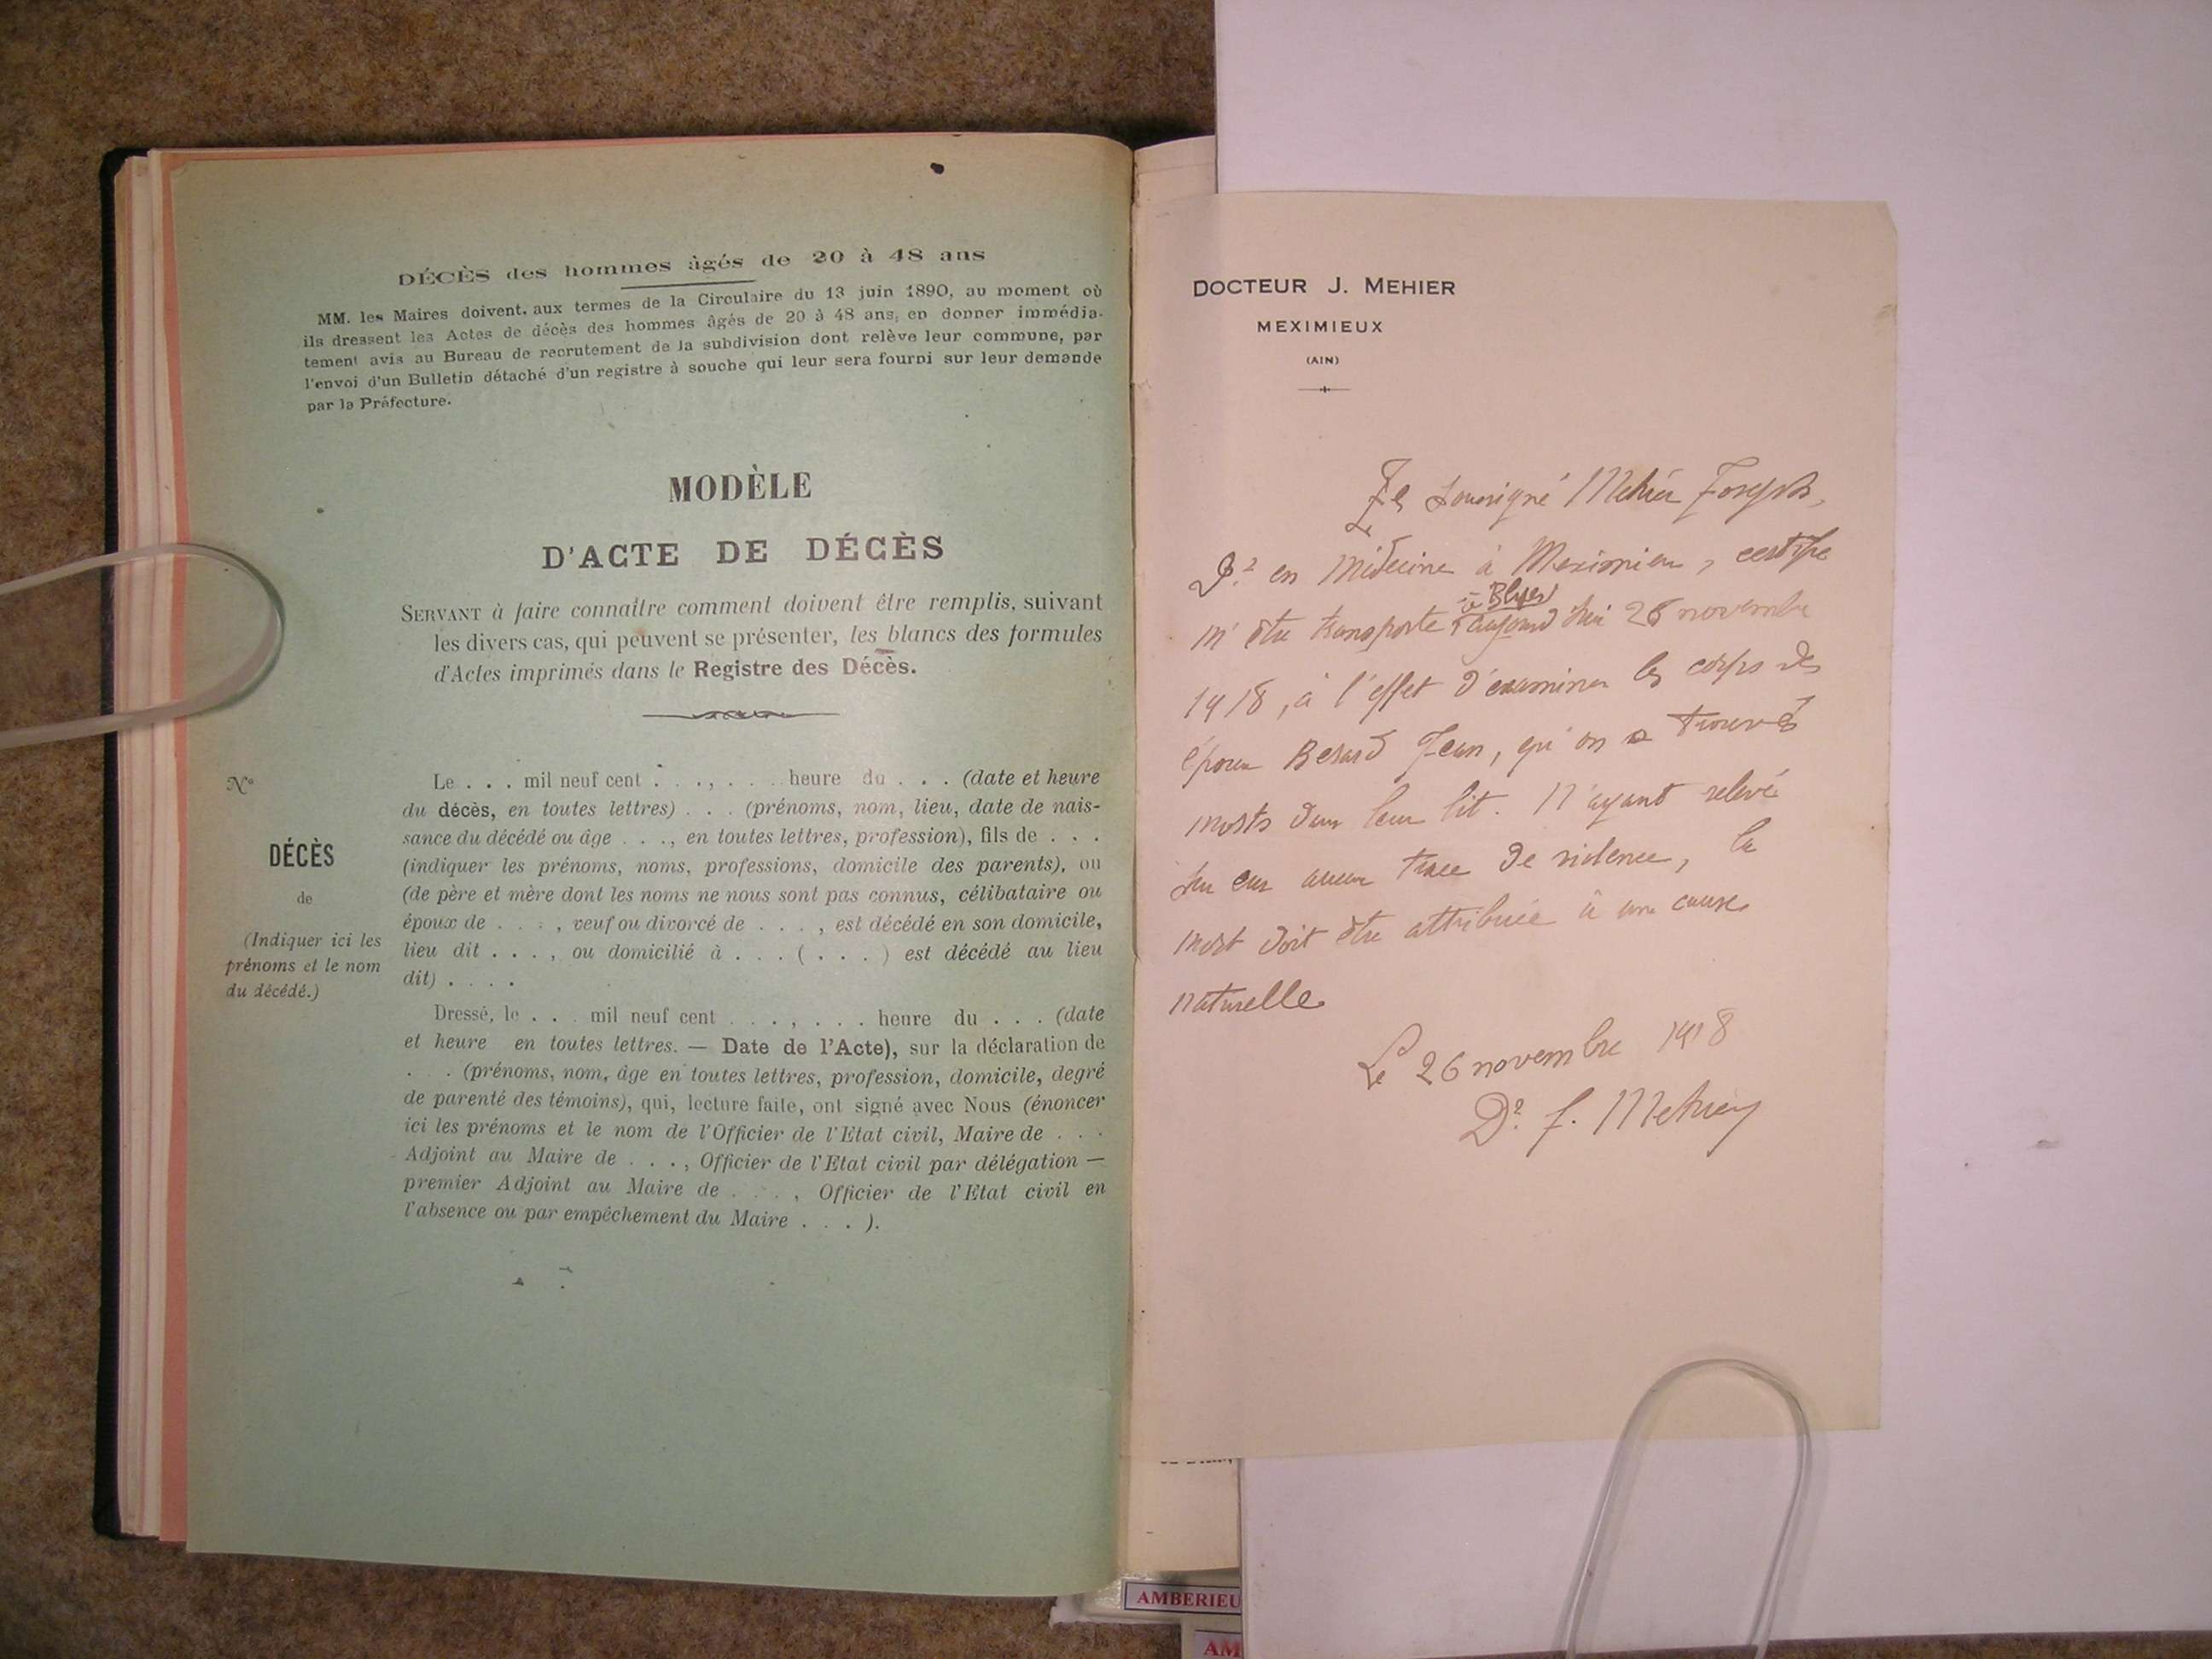 DÉCÈS des hommes âgés de 20 à 48 ans
MM. les Maires doivent, aux termes de la Circulaire du 13 juin 1890, au moment où
ils dressent les Actes de décès des hommes âgés de 20 à 48 ans, en donner immédia-
tement avis au Bureau de recrutement de la subdivision dont relève leur commune, par
l'envoi d'un Bulletin détaché d'un registre à souche qui leur sera fourni sur leur demande
par la Préfecture.
MODÈLE
D'ACTE DE DÉCÈS
SERVANT à faire connaître comment doivent être remplis, suivant
les divers cas, qui peuvent se présenter, les blancs des formules
d'Actes imprimés dans le Registre des Décès.
N°
DÉCÈS
de
(Indiquer ici les
prénoms et le nom
du décédé.)
Le . . . mil neuf cent . . . , . . . heure du . . . (date et heure
du décès, en toutes lettres) . . . (prénoms, nom, lieu, date de nais-
sance du décédé ou âge . . . ., en toutes lettres, profession), fils de . . .
(indiquer les prénoms, noms, professions, domicile des parents), ou
(de père et mère dont les noms ne nous sont pas connus, célibataire ou
époux de . . . , veuf ou divorcé de . . . . , est décédé en son domicile,
lieu dit . . . , ou domicilié à . . . ( . . . ) est décédé au lieu
dit) . . . .
Dressé, le . . . mil neuf cent . . . , . . . heure du . . . (date
et heure en toutes lettres. — Date de l'Acte), sur la déclaration de
. . (prénoms, nom, âge en toutes lettres, profession, domicile, degré
de parenté des témoins), qui, lecture faite, ont signé avec Nous (énoncer
ici les prénoms et le nom de l'Officier de l'Etat civil, Maire de . . .
Adjoint au Maire de . . . , Officier de l'Etat civil par délégation —
premier Adjoint au Maire de . . . , Officier de l'Etat civil en
l'absence ou par empêchement du Maire . . . ).
DOCTEUR J. MEHIER
MEXIMIEUX
(AIN)
Je soussigné Mehier Joseph,
Dr en Médecine à Meximieu, certifie
à Blyes
m'être transporté aujourd'hui 26 novembre
1918, à l'effet d'examiner les corps des
époux Besard Jean, qu'on a trouvés
morts dans leur lit. N'ayant relevé
sur eux aucune trace de violence, la
mort doit être attribuée à une cause
naturelle
Le 26 novembre 1918
Dr J. Mehier
AMBERIEU
AM